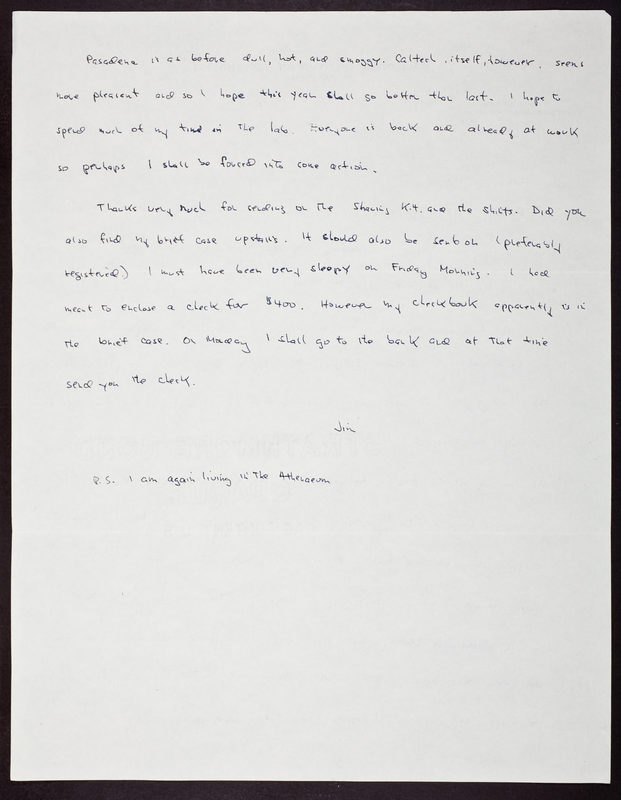 Pasadena is as before dull, hot, and smoggy. Caltech, itself, however, seems
more pleasant and so I hope this year shall go better than last. I hope to
spend much of my time in the lab. Everyone is back and already at work
so perhaps I shall be forced into some action.
Thanks very much for sending on the Shaving Kit and the shirts. Did you
also find my brief case upstairs. It should also be sent on (preferably
registered) I must have been very sleepy on Friday Morning. I had
meant to enclose a check for $400. However my checkbook apparently is in
the brief case. On Monday I shall go to the bank and at that time
send you the check.
Jim
P.S. I am again living in the Athenaeum